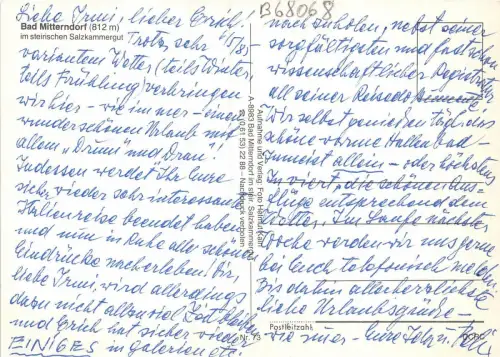 B68068
Liebe Irmi, lieber Erich!
Bad Mitterndorf (812 m)
im steirischen Salzkammergut
6/5/85
Trotz sehr
variantem Wetter (teils Winter,
teils Frühling) verbringen
wir hier - wie immer - einen
wunderschönen Urlaub mit
allem "Drum und Dran".
Indessen werdet Ihr Eure
sicher wieder sehr interessante
Italienreise beendet haben
und nun in Ruhe alle schönen
Eindrücke nacherleben. Dir,
liebe Irmi, wird allerdings
dazu nicht allzu viel Zeit bleiben
und Erich hat sicher wieder
EINIGES in galerien etc.
A-8983 Bad Mitterndorf im steir. Salzkammergut
Aufnahme und Verlag Foto
Nachdruck verboten
Nr. 73
nachzuholen, nebst seiner
sorgfältigsten und fast schon
wissenschaftlicher Registratur
all seiner Reisedokumente.
Wir selbst genießen tägl. das
schöne warme Hallenbad -
zumeist allein - oder höchstens
zu viert, die schönen Aus-
flüge entsprechend dem
Wetter. Im Laufe nächster
Woche werden wir uns gerne
bei Euch telefonisch melden.
Bis dahin allerherzlichste
liebe Urlaubsgrüße -
Postleitzahl
wie immer - Eure